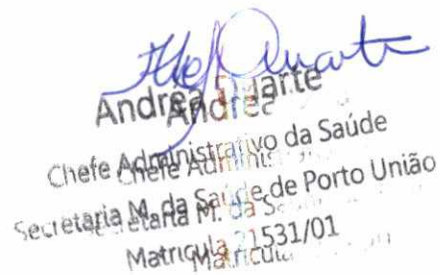 Andrea Duarte
Chefe Administrativo da Saúde
Secretaria M. da Saúde de Porto União
Matricula 21531/01